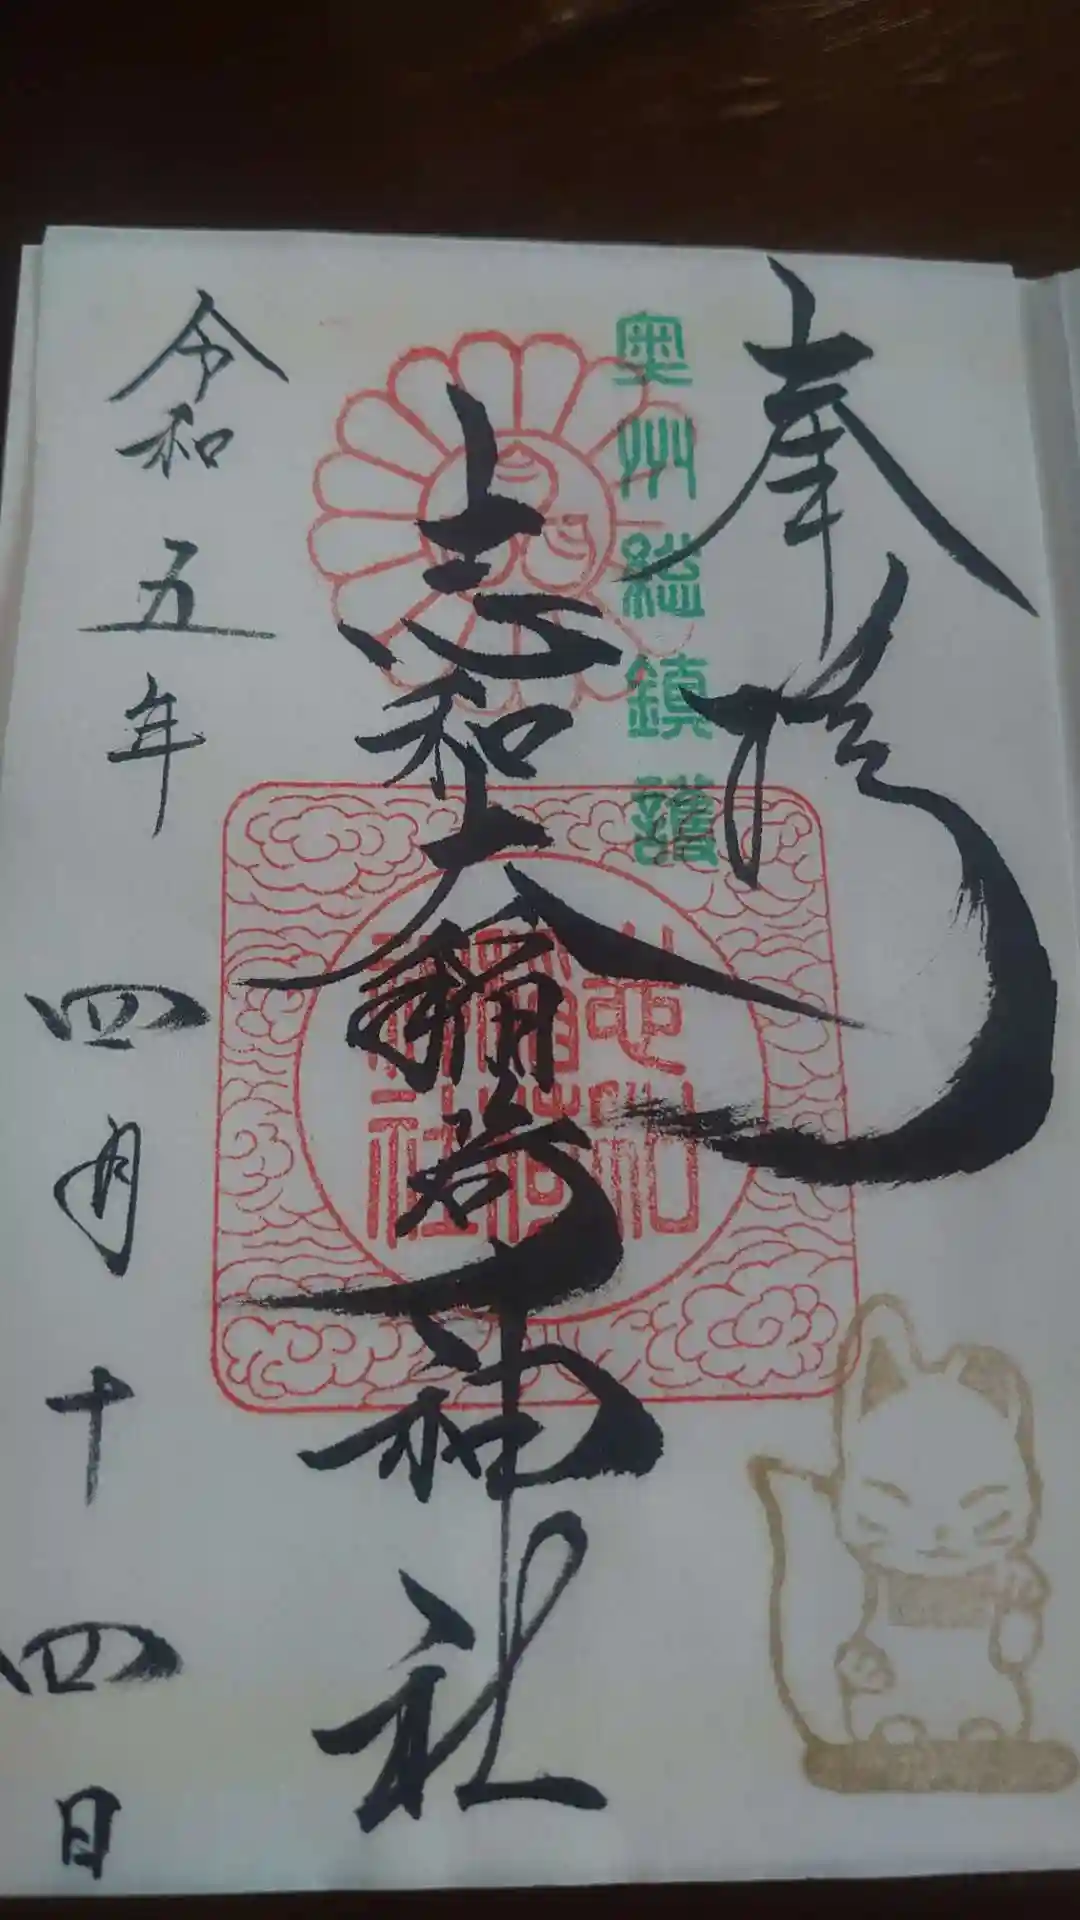 奉拝
奥州総鎮護
志和大稲荷神社
志和
稲荷
神社
令和五年四月十四日